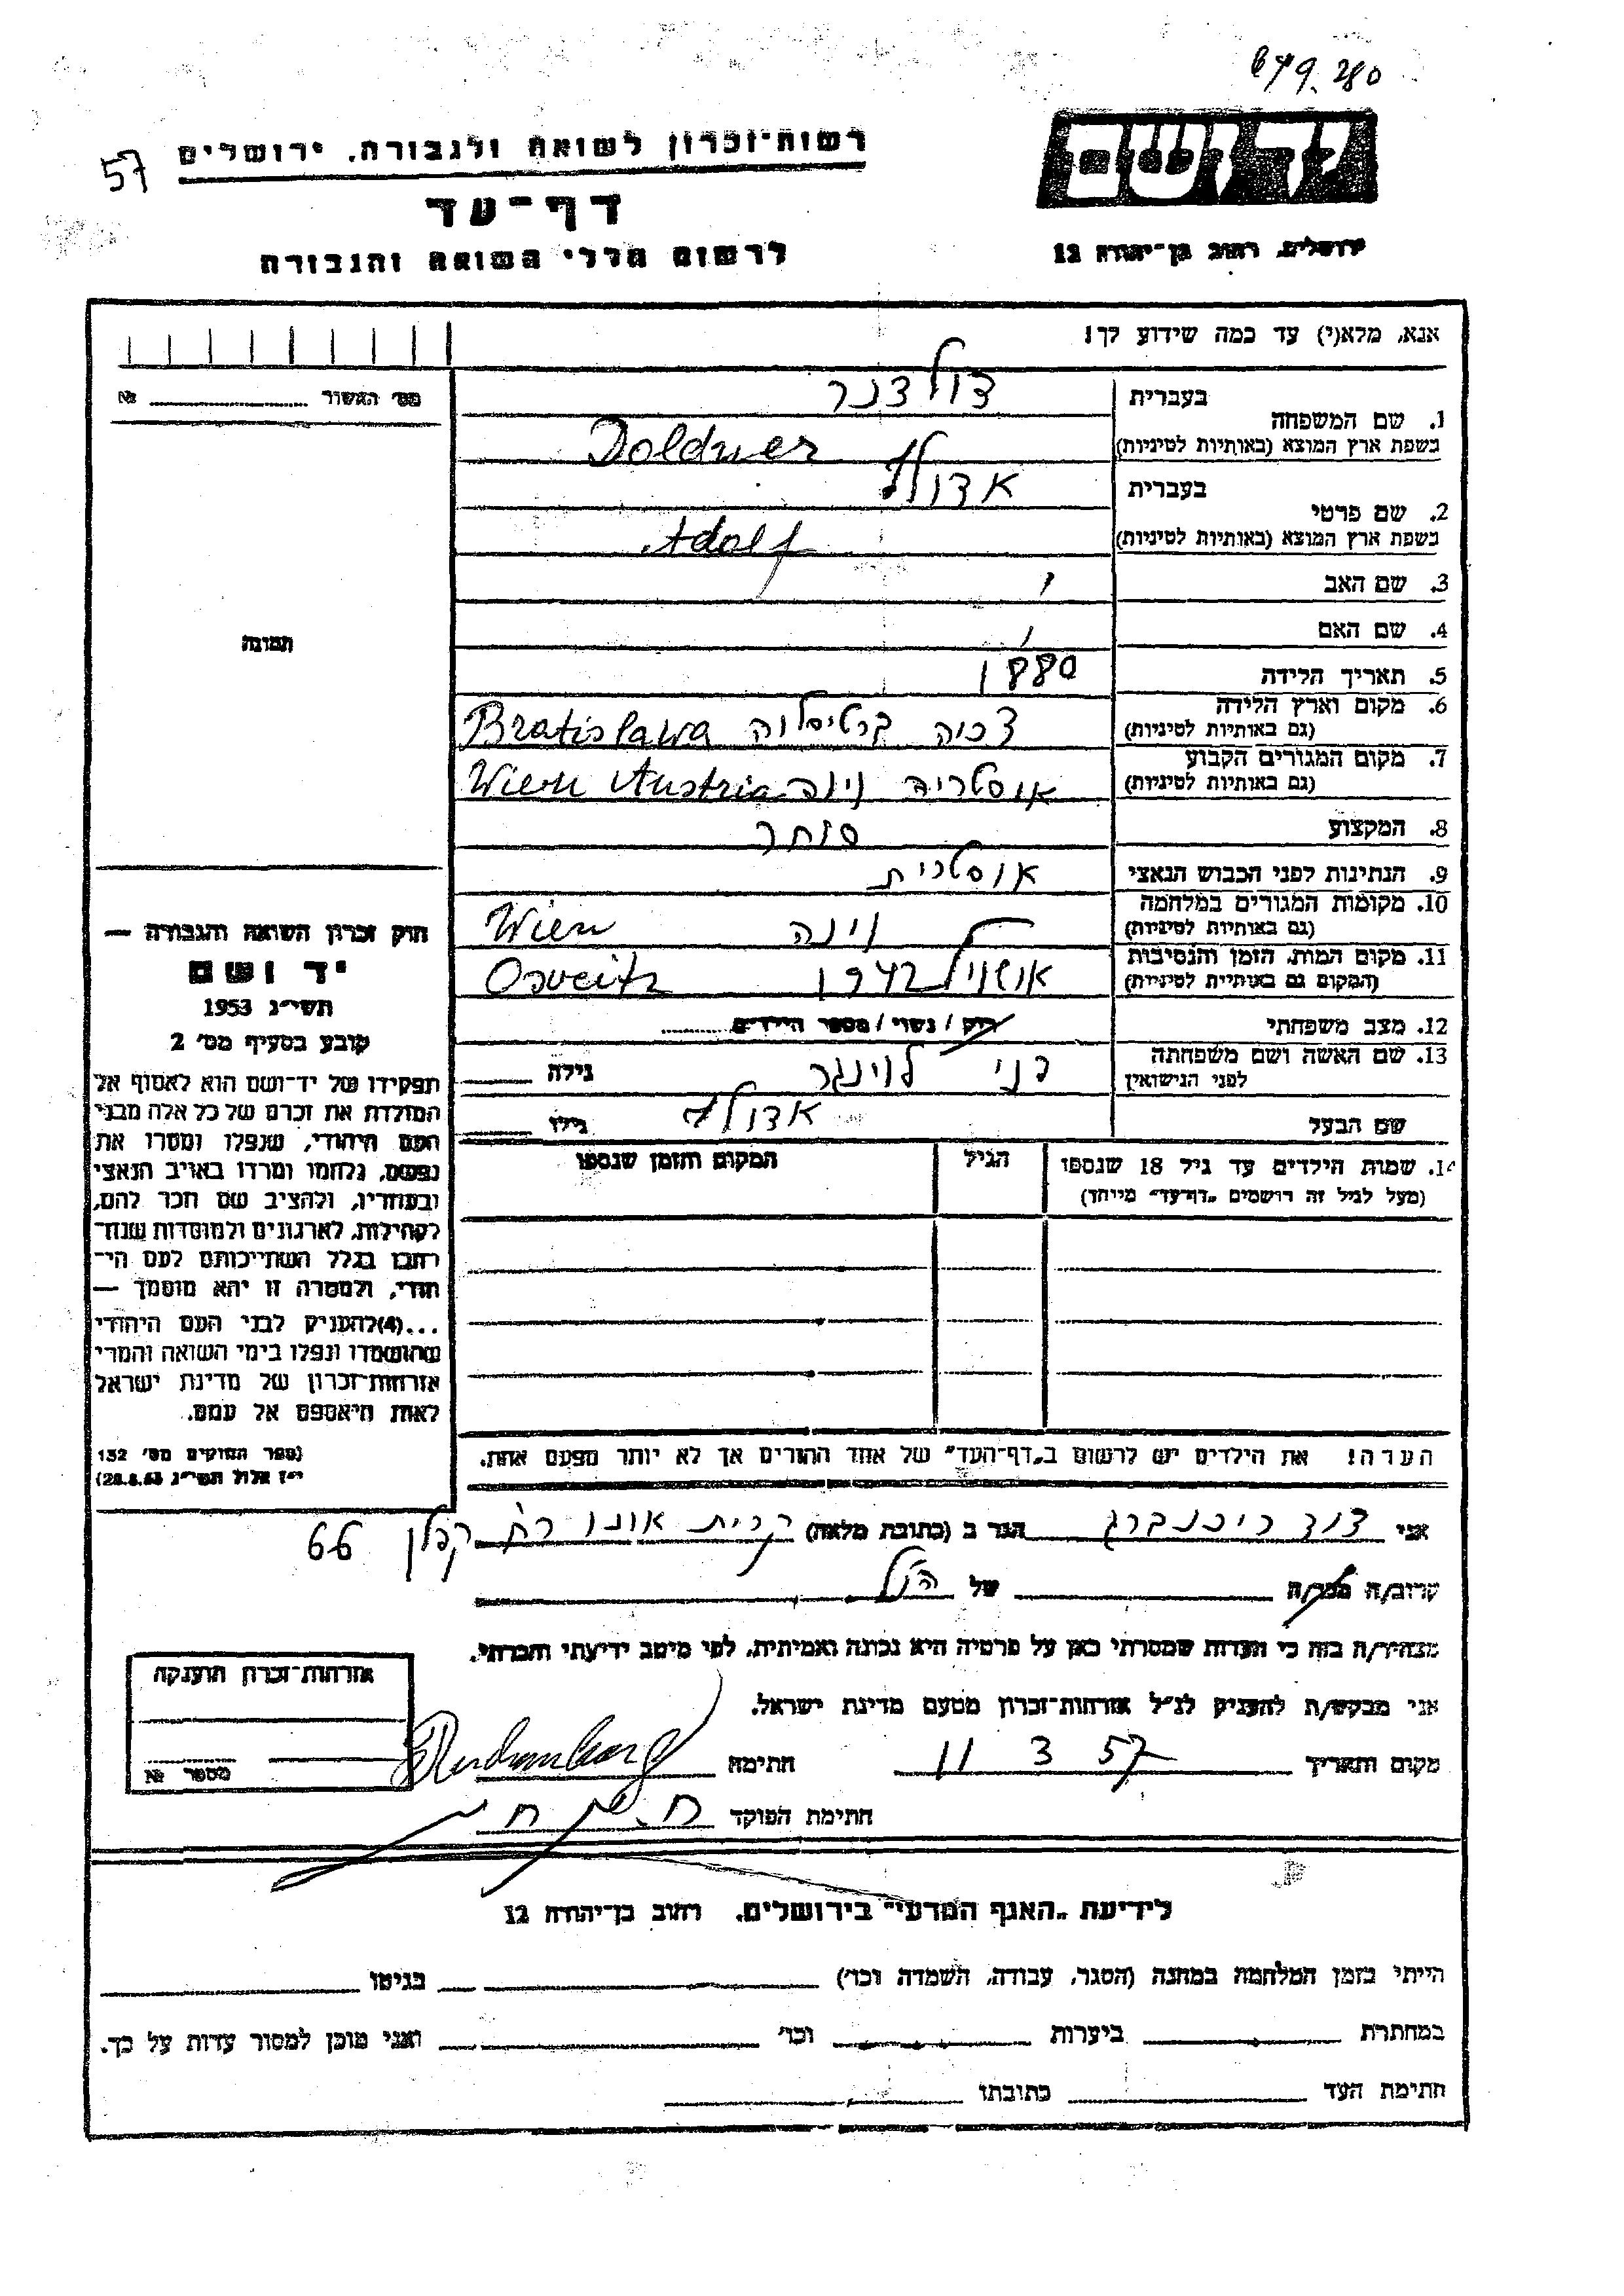 679.280
57
רשות־זכרון לשואה ולגבורה, ירושלים
יד ושם
דף־עד
לרשום חללי השואה והגבורה
ירושלים, רחוב בן־יהודה 12
אנא, מלא(י) עד כמה שידוע לך!
מס׳ האשור №
1. שם המשפחה בעברית דולדנר
בשפת ארץ המוצא (באותיות לטיניות) Doldner
2. שם פרטי בעברית אדולף
בשפת ארץ המוצא (באותיות לטיניות) Adolf
3. שם האב
4. שם האם
תמונה
5. תאריך הלידה 1880
6. מקום וארץ הלידה (גם באותיות לטיניות) צכיה ברטיסלוה Bratislawa
7. מקום המגורים הקבוע (גם באותיות לטיניות) אוסטריה וינה Wien Austria
8. המקצוע סוחר
9. הנתינות לפני הכבוש הנאצי אוסטרית
10. מקומות המגורים במלחמה (גם באותיות לטיניות) וינה Wien
11. מקום המות, הזמן והנסיבות (המקום גם באותיות לטיניות) 1942
12. מצב משפחתי רווק/נשוי/מספר הילדים
13. שם האשה ושם משפחתה לפני הנישואין לוינגר גילה
שם הבעל אדולף גילו
14. שמות הילדים עד גיל 18 שנספו הגיל המקום והזמן שנספו
(מעל לגיל זה רושמים „דף־עד״ מיוחד)
חוק זכרון השואה והגבורה —
יד ושם
תשי״ג 1953
קובע בסעיף מס׳ 2
תפקידו של יד־ושם הוא לאסוף אל
המולדת את זכרם של כל אלה מבני
העם היהודי, שנפלו ומסרו את
נפשם, נלחמו ומרדו באויב הנאצי
ובעוזריו, ולהציב שם וזכר להם,
לקהילות, לארגונים ולמוסדות שנח־
רבו בגלל השתייכותם לעם הי־
הודי, ולמטרה זו יהא מוסמך —
...(4)להעניק לבני העם היהודי
שהושמדו ונפלו בימי השואה והמרי
אזרחות־זכרון של מדינת ישראל
לאות היאספם אל עמם.
(ספר החוקים מס׳ 132
י״ז אלול תשי״ג 28.8.53)
הערה! את הילדים יש לרשום ב„דף־העד״ של אחד ההורים אך לא יותר מפעם אחת.
אני דוד רייכנברג הגר ב (כתובת מלאה) קרית אונו רח׳ קפלן 66
קרוב/ה מכר/ה של הנ״ל
מצהיר/ה בזה כי העדות שמסרתי כאן על פרטיה היא נכונה ואמיתית, לפי מיטב ידיעתי והכרתי.
אני מבקש/ת להעניק לנ״ל אזרחות־זכרון מטעם מדינת ישראל.
מקום ותאריך 11 3 57 חתימה
חתימת הפוקד
אזרחות־זכרון הוענקה
מספר №
לידיעת „האגף המדעי״ בירושלים, רחוב בן־יהודה 12
הייתי בזמן המלחמה במחנה (הסגר, עבודה, השמדה וכו׳) בגיטו
במחתרת ביערות וכו׳ ואני מוכן למסור עדות על כך.
חתימת העד כתובתו